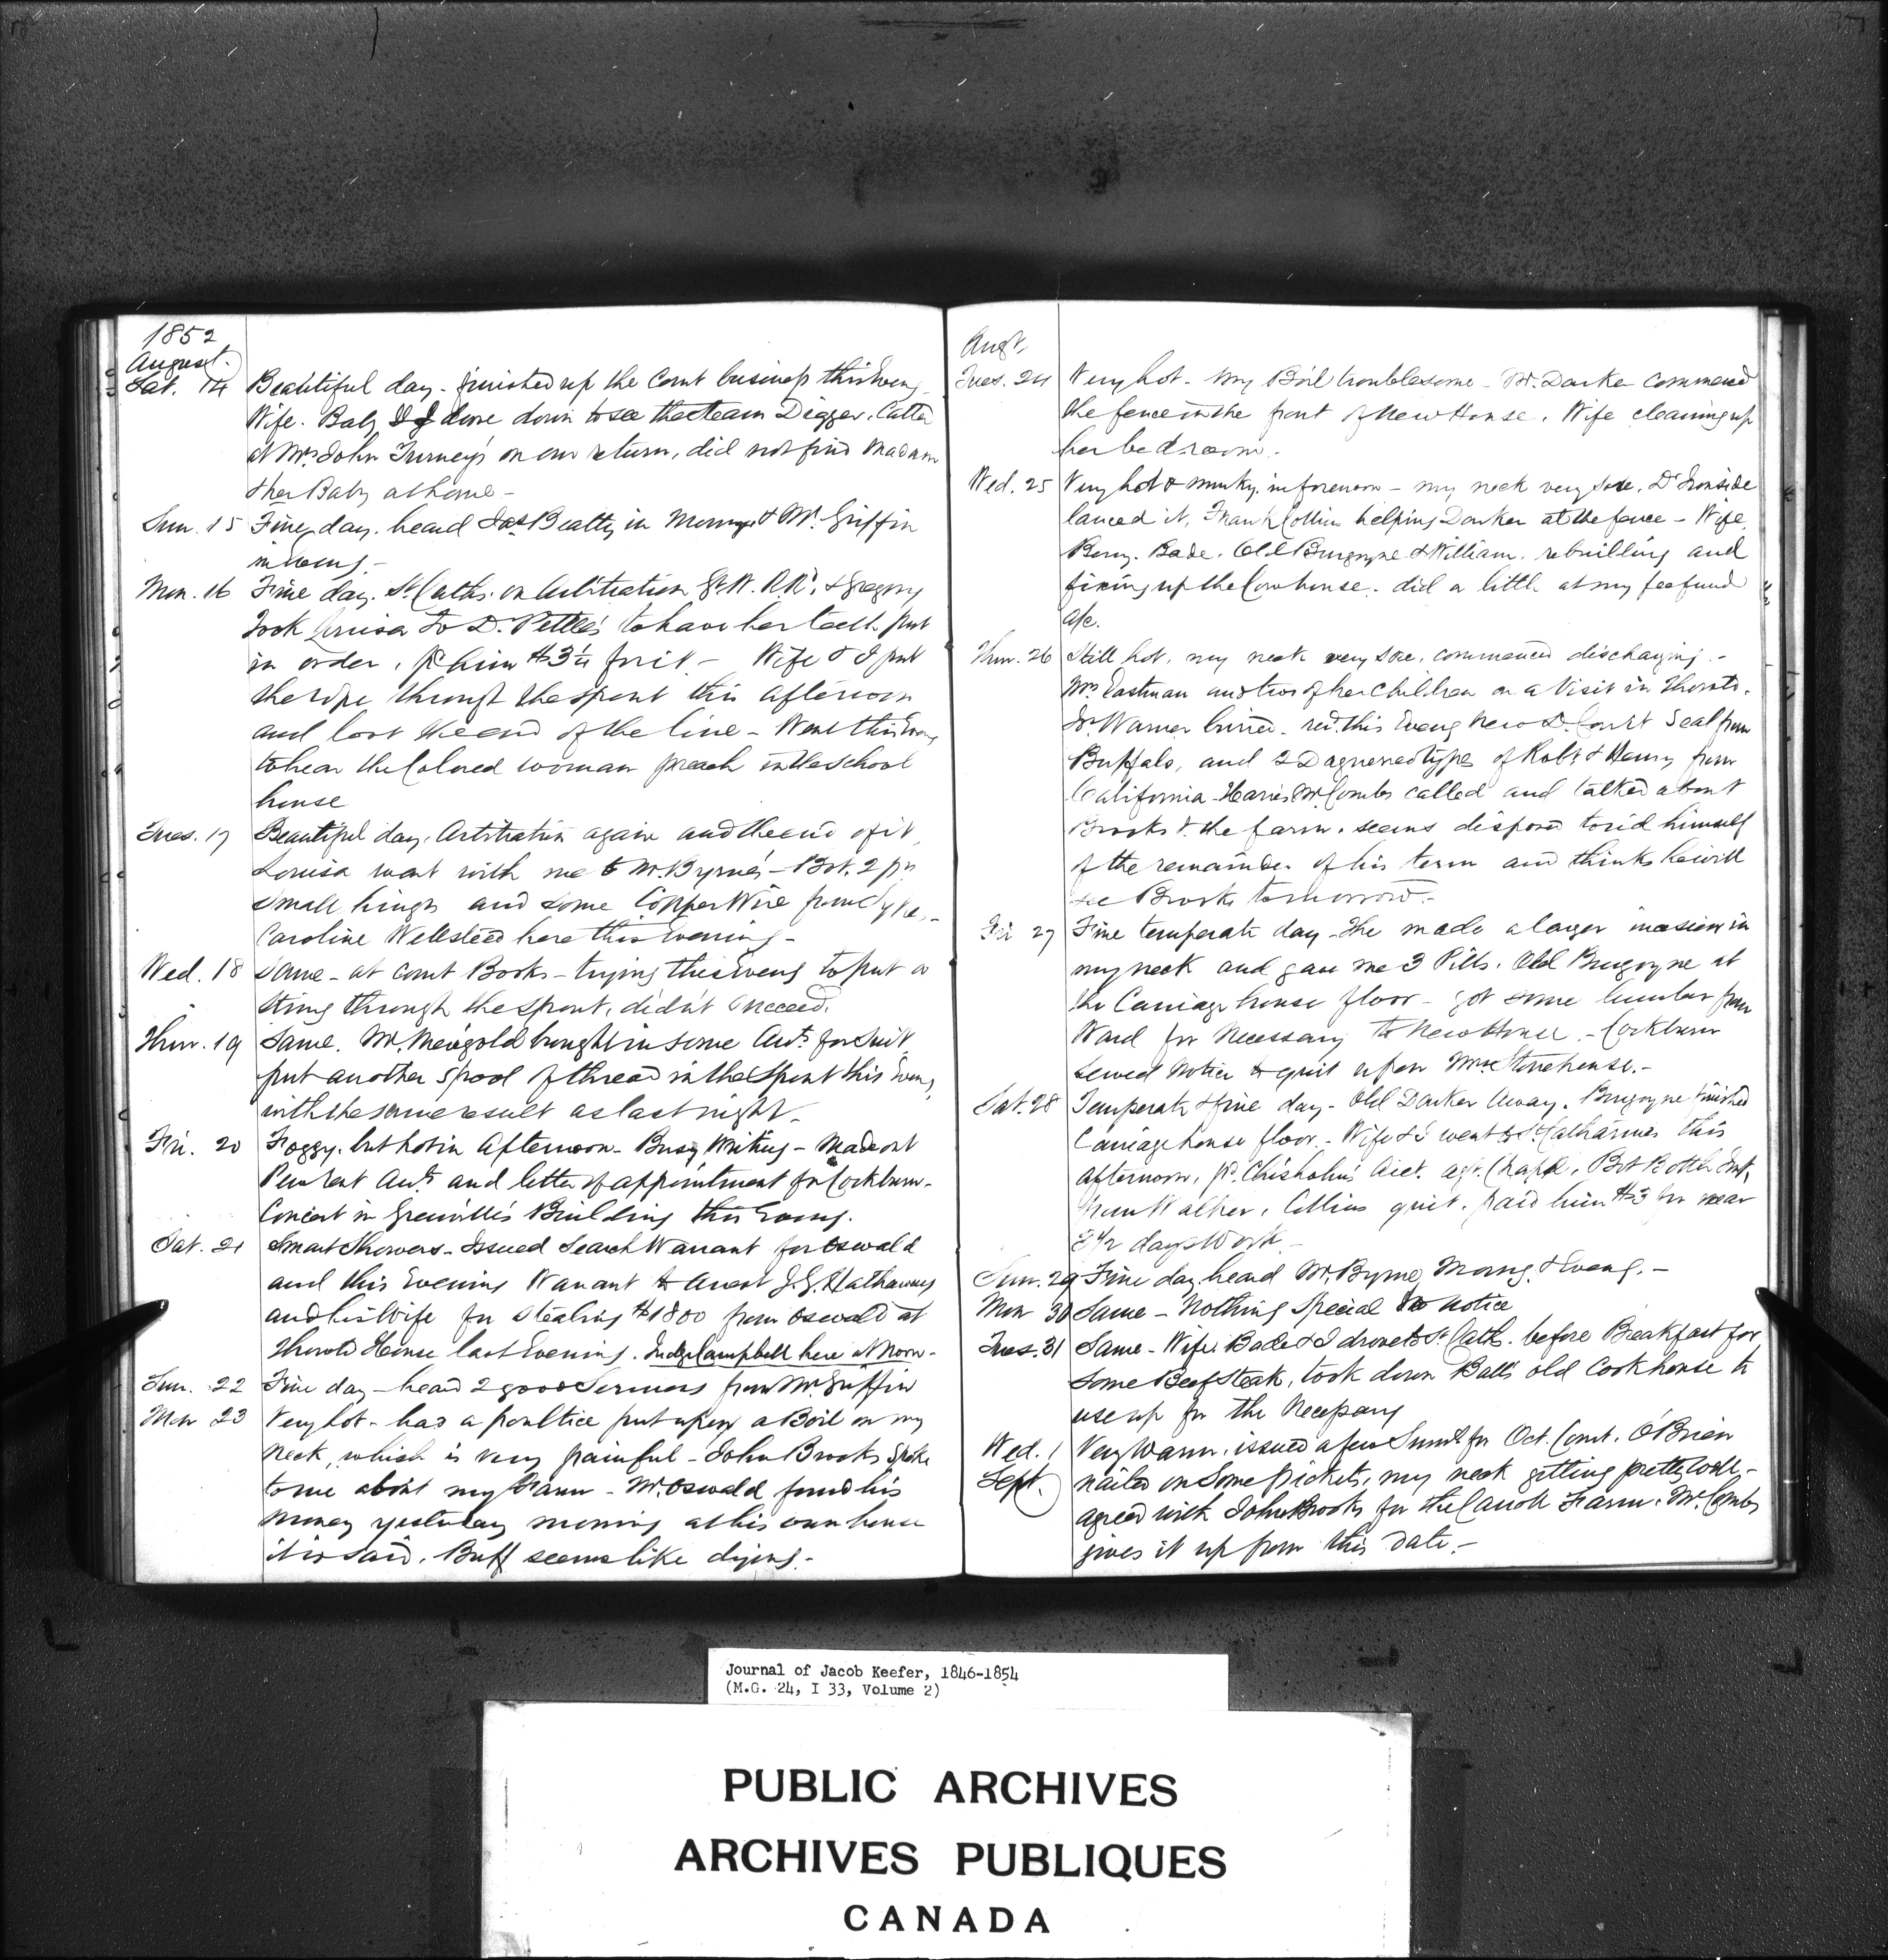 1852
August.
Sat. 14 Beautiful day - finished up the Court business this Eveng
Wife. Baby & I drove down to see the steam Digger. Called
at Mrs John Turney's on our return, did not find Madam
& her Baby at home -
Sun. 15 Fine day. heard Jas Beatty in Morng & Mr. Griffin
in Eveng. -
Mon. 16 Fine day. St. Caths. on Arbitration G. W. R.Rd. & Gregory
Took Louisa to D. Pettee's to have her teeth put
in order, pd him $3¼ for it - Wife & I put
the rope through the spout this afternoon
and lost the end of the line - Went this Eveng
to hear the Colored woman preach in the school
house
Tues. 17 Beautiful day, Arbitration again and the end of it,
Louisa went with me to Mr. Byrne's - Bot. 2 prs
small hinges and some Copper Wire from Dyke. -
Caroline Wellsteed here this Evening -
Wed. 18 Same - at Court Books - trying this Eveng to put a
string through the spout, didn't succeed.
Thur. 19 Same. Mr. brought in some Acts for suit
put another spool of thread in the spout this Eveng,
with the same result as last night -
Fri. 20 Foggy. but hot in Afternoon - Busy Writing - Made out
Pew rent Acts and letter of appointment for Cockburn -
Concert in Grenville's Building this Eveng.
Sat. 21 Smart Showers - Issued Search Warrant for Oswald
and this Evening Warrant to arrest J. G. Hathaway
and his Wife for stealing $1800 from Oswald at
Thorold House last Evening. Judge Campbell here at Noon -
Sun. 22 Fine day - heard 2 good Sermons from Mr. Griffin
Mon 23 Very hot - had a poultice put upon a Boil on my
neck, which is very painful - John Brooks spoke
to me about my Farm - Mr. Oswald found his
money yesterday morning at his own house
it is said. Buff seems like dying -
Augt.
Tues. 24 Very hot - my Boil troublesome - Mr. Darker commenced
the fence in the front of New House. Wife cleaning up
her bedroom -
Wed. 25 Very hot & murky in forenoon - my neck very sore. Dr Ironside
lanced it, Frank Collins helping Darker at the fence - Wife.
Bade. Old Burgoyne & William. rebuilding and
fixing up the Cow house. did a little at my fee fund
a/c.
Thur. 26 Still hot, my neck very sore, commenced discharging. -
Mrs Eastman and two of her children on a Visit in Thorold.
Warner buried. recd. this Eveng new D. Court Seal from
Buffalo, and 2 Daguerreotypes of Robt & Henry from
California - McCombs called and talked about
Brooks & the farm, seems disposed to rid himself
of the remainder of his term and thinks he will
see Brooks tomorrow -
Fri 27 Fine temperate day - the made a larger incision in
my neck and gave me 3 Pills. Old Burgoyne at
the Carriage house floor - got some lumber from
Ward for Necessary to New House. - Cockburn
served Notice to quit upon Mrs. Stonehouse. -
Sat. 28 Temperate & fine day - Old Darker Away. Burgoyne finished
Carriage house floor - Wife & I went to St. Catharines this
afternoon, pd. Chisholm's Acct. Bot Bottle Ink,
from Walker, Collins quit. paid him $3 for near
3½ days Work -
Sun. 29 Fine day heard Mr. Byrne, Morng. & Eveng. -
Mon 30 Same - Nothing Special to notice
Tues. 31 Same - Wife. Bade & I drove to St Cath. before Breakfast for
some Beef Steak, took down Ball's old Cook house to
use up for the Necessary
Wed. 1 Very Warm. issued a few Summs. for Oct. Court. O'Brien
Sept. nailed on Some pickets, my neck getting pretty well -
agreed with John Brooks for the Farm. Mr. Combs
gives it up from this date. -
Journal of Jacob Keefer, 1846-1854
(M.G. 24, I 33, Volume 2)
PUBLIC ARCHIVES
ARCHIVES PUBLIQUES
CANADA